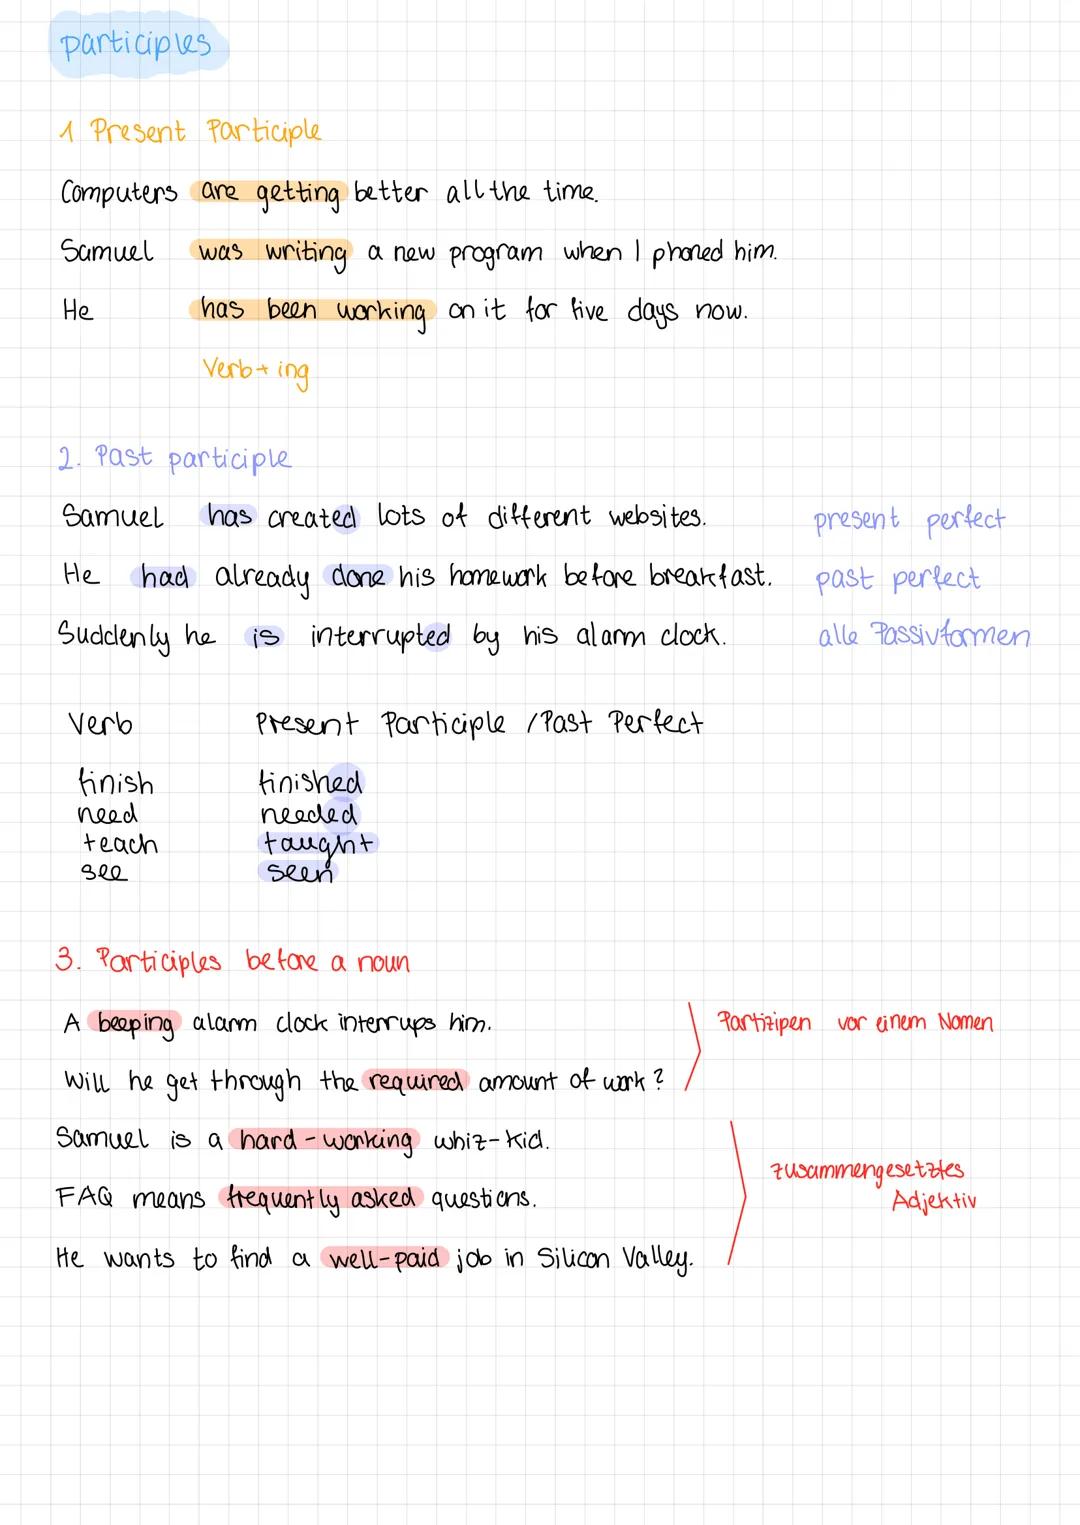 participles
1 Present Participle
Computers are getting better all the time.
Samuel was writing a new program when I phoned him.
He has been working on it for five days now.
Verb + ing
2. Past participle
Samuel has created lots of different websites. present perfect
He had already done his homework before breakfast. past perfect
Suddenly he is interrupted by his alarm clock. alle Passivformen
Verb Present Participle / Past Perfect
finish finished
need needed
teach taught
see seen
3. Participles before a noun
A beeping alarm clock interrups him. Partizipen vor einem Nomen
Will he get through the required amount of work?
Samuel is a hard-working whiz-kid.
zusammengesetztes
FAQ means frequently asked questions. Adjektiv
He wants to find a well-paid job in Silicon Valley.